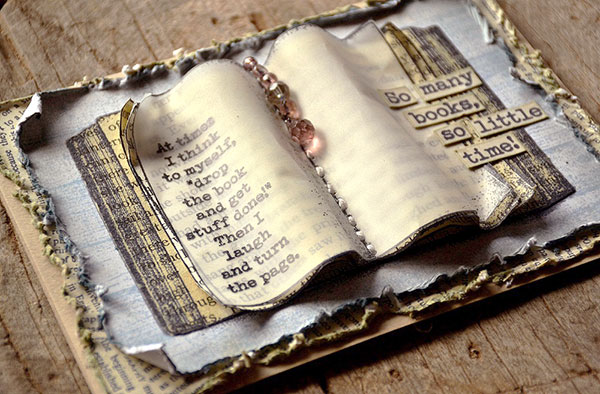 At times
I think
to myself,
"drop
the book
and get
stuff done!"
Then I
laugh
and turn
the page.
So many
books,
so little
time.